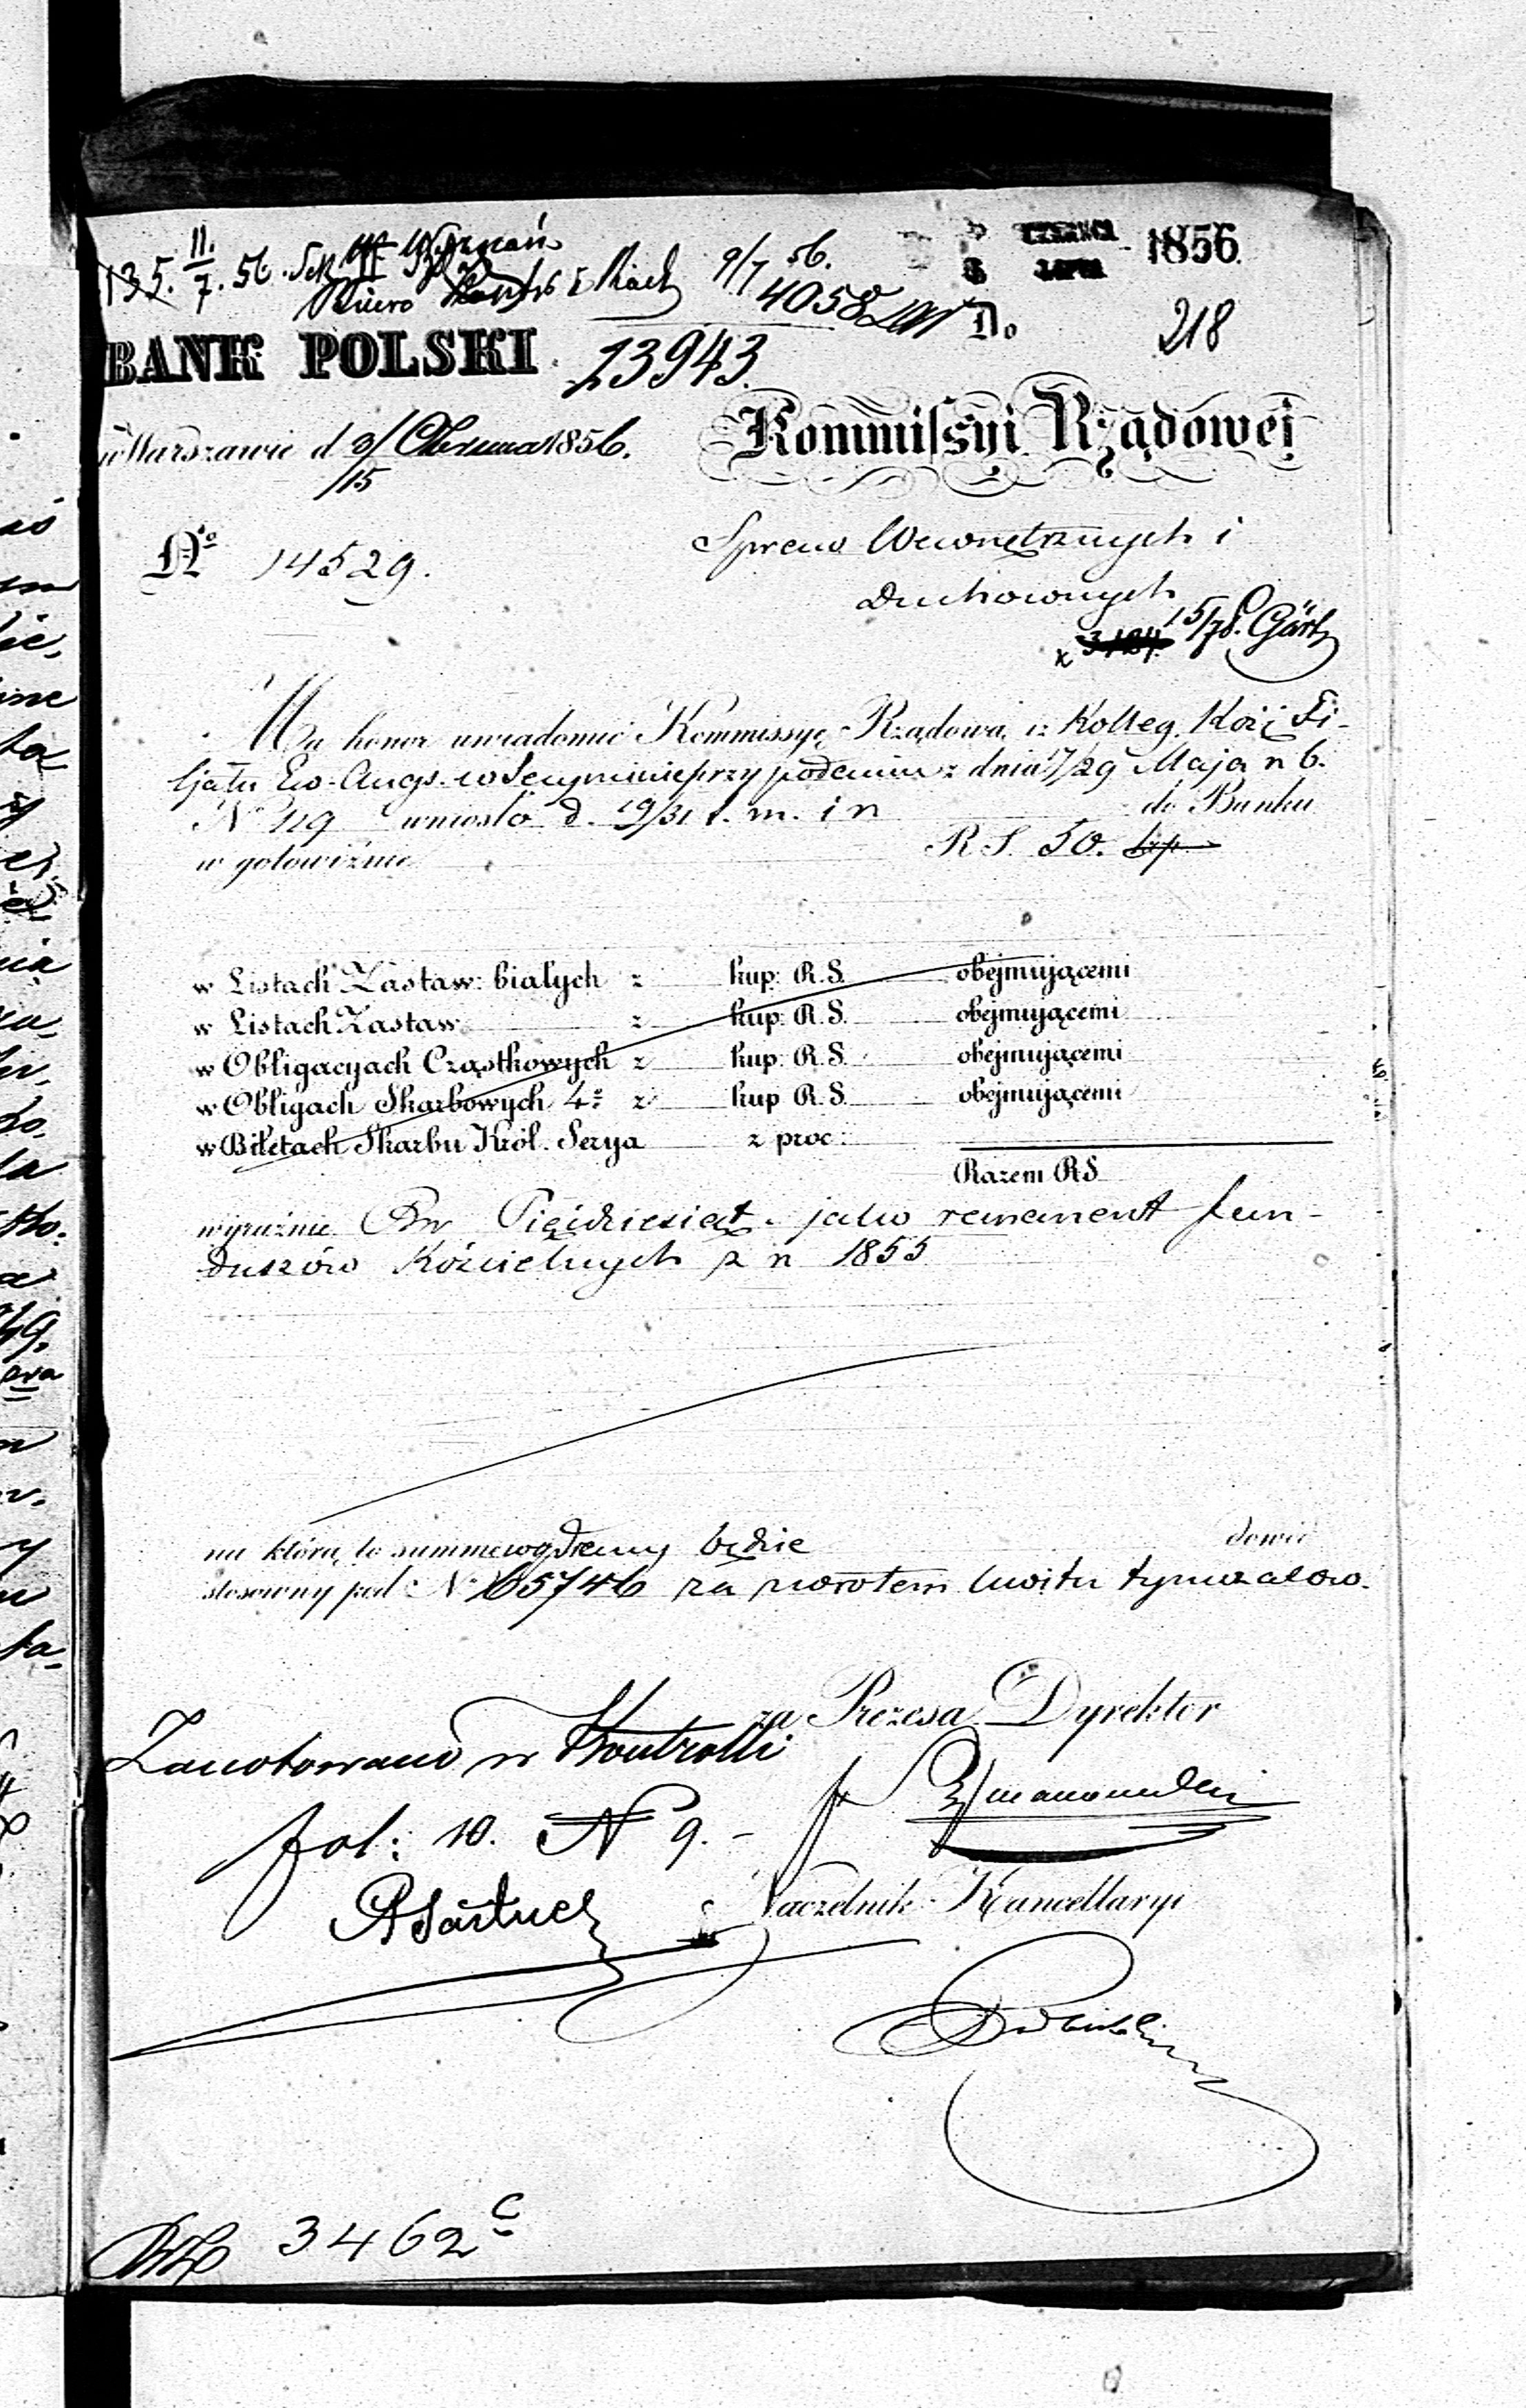 135. 11/7. 56.
Biuro
9/7 56.
4058
CZERWCA 1856
LIPCA
BANK POLSKI
23943.
Do
218
w Warszawie d 3/15 Czerwca 1856.
Kommissyi Rządowej
No 14529.
Spraw Wewnętrznych i
Duchownych
Ma honor uwiadomić Kommissyę Rządową, iż Kolleg. Koś: Fi-
ljału Ew-Augs. w Secyminie przy podaniu z dnia 17/29 Maja r b.
No 119 wniosło d. 19/31 t. m. i r do Banku
w gotowiźnie R S. 50.
w Listach Zastaw: białych z kup: R. S. obejmującemi
w Listach Zastaw z kup: R. S. obejmującemi
w Obligacyach Cząstkowych z kup: R. S. obejmującemi
w Obligach Skarbowych 4% z kup R. S. obejmującemi
w Biletach Skarbu Król. Serya z proc:
Razem RS
wyraźnie Rsr Pięćdziesiąt. jako remanent fun-
duszów Kościelnych z r 1855
na którą to summę wydany będzie dowód
stosowny pod No 65746 za zwrotem kwitu tymczasow.
za Prezesa Dyrektor
Zanotowano w Kontrolli
fol: 10. N 9. -
Naczelnik Kancellaryi
3462 c